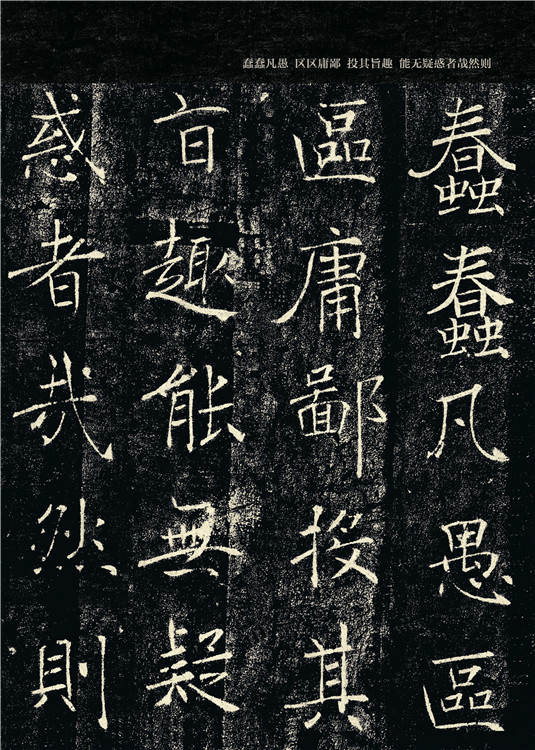 蠢蠢凡愚 区区庸鄙 投其旨趣 能无疑惑者哉然则
蠢蠢凡愚區
區庸鄙投其
旨趣能無疑
惑者哉然則